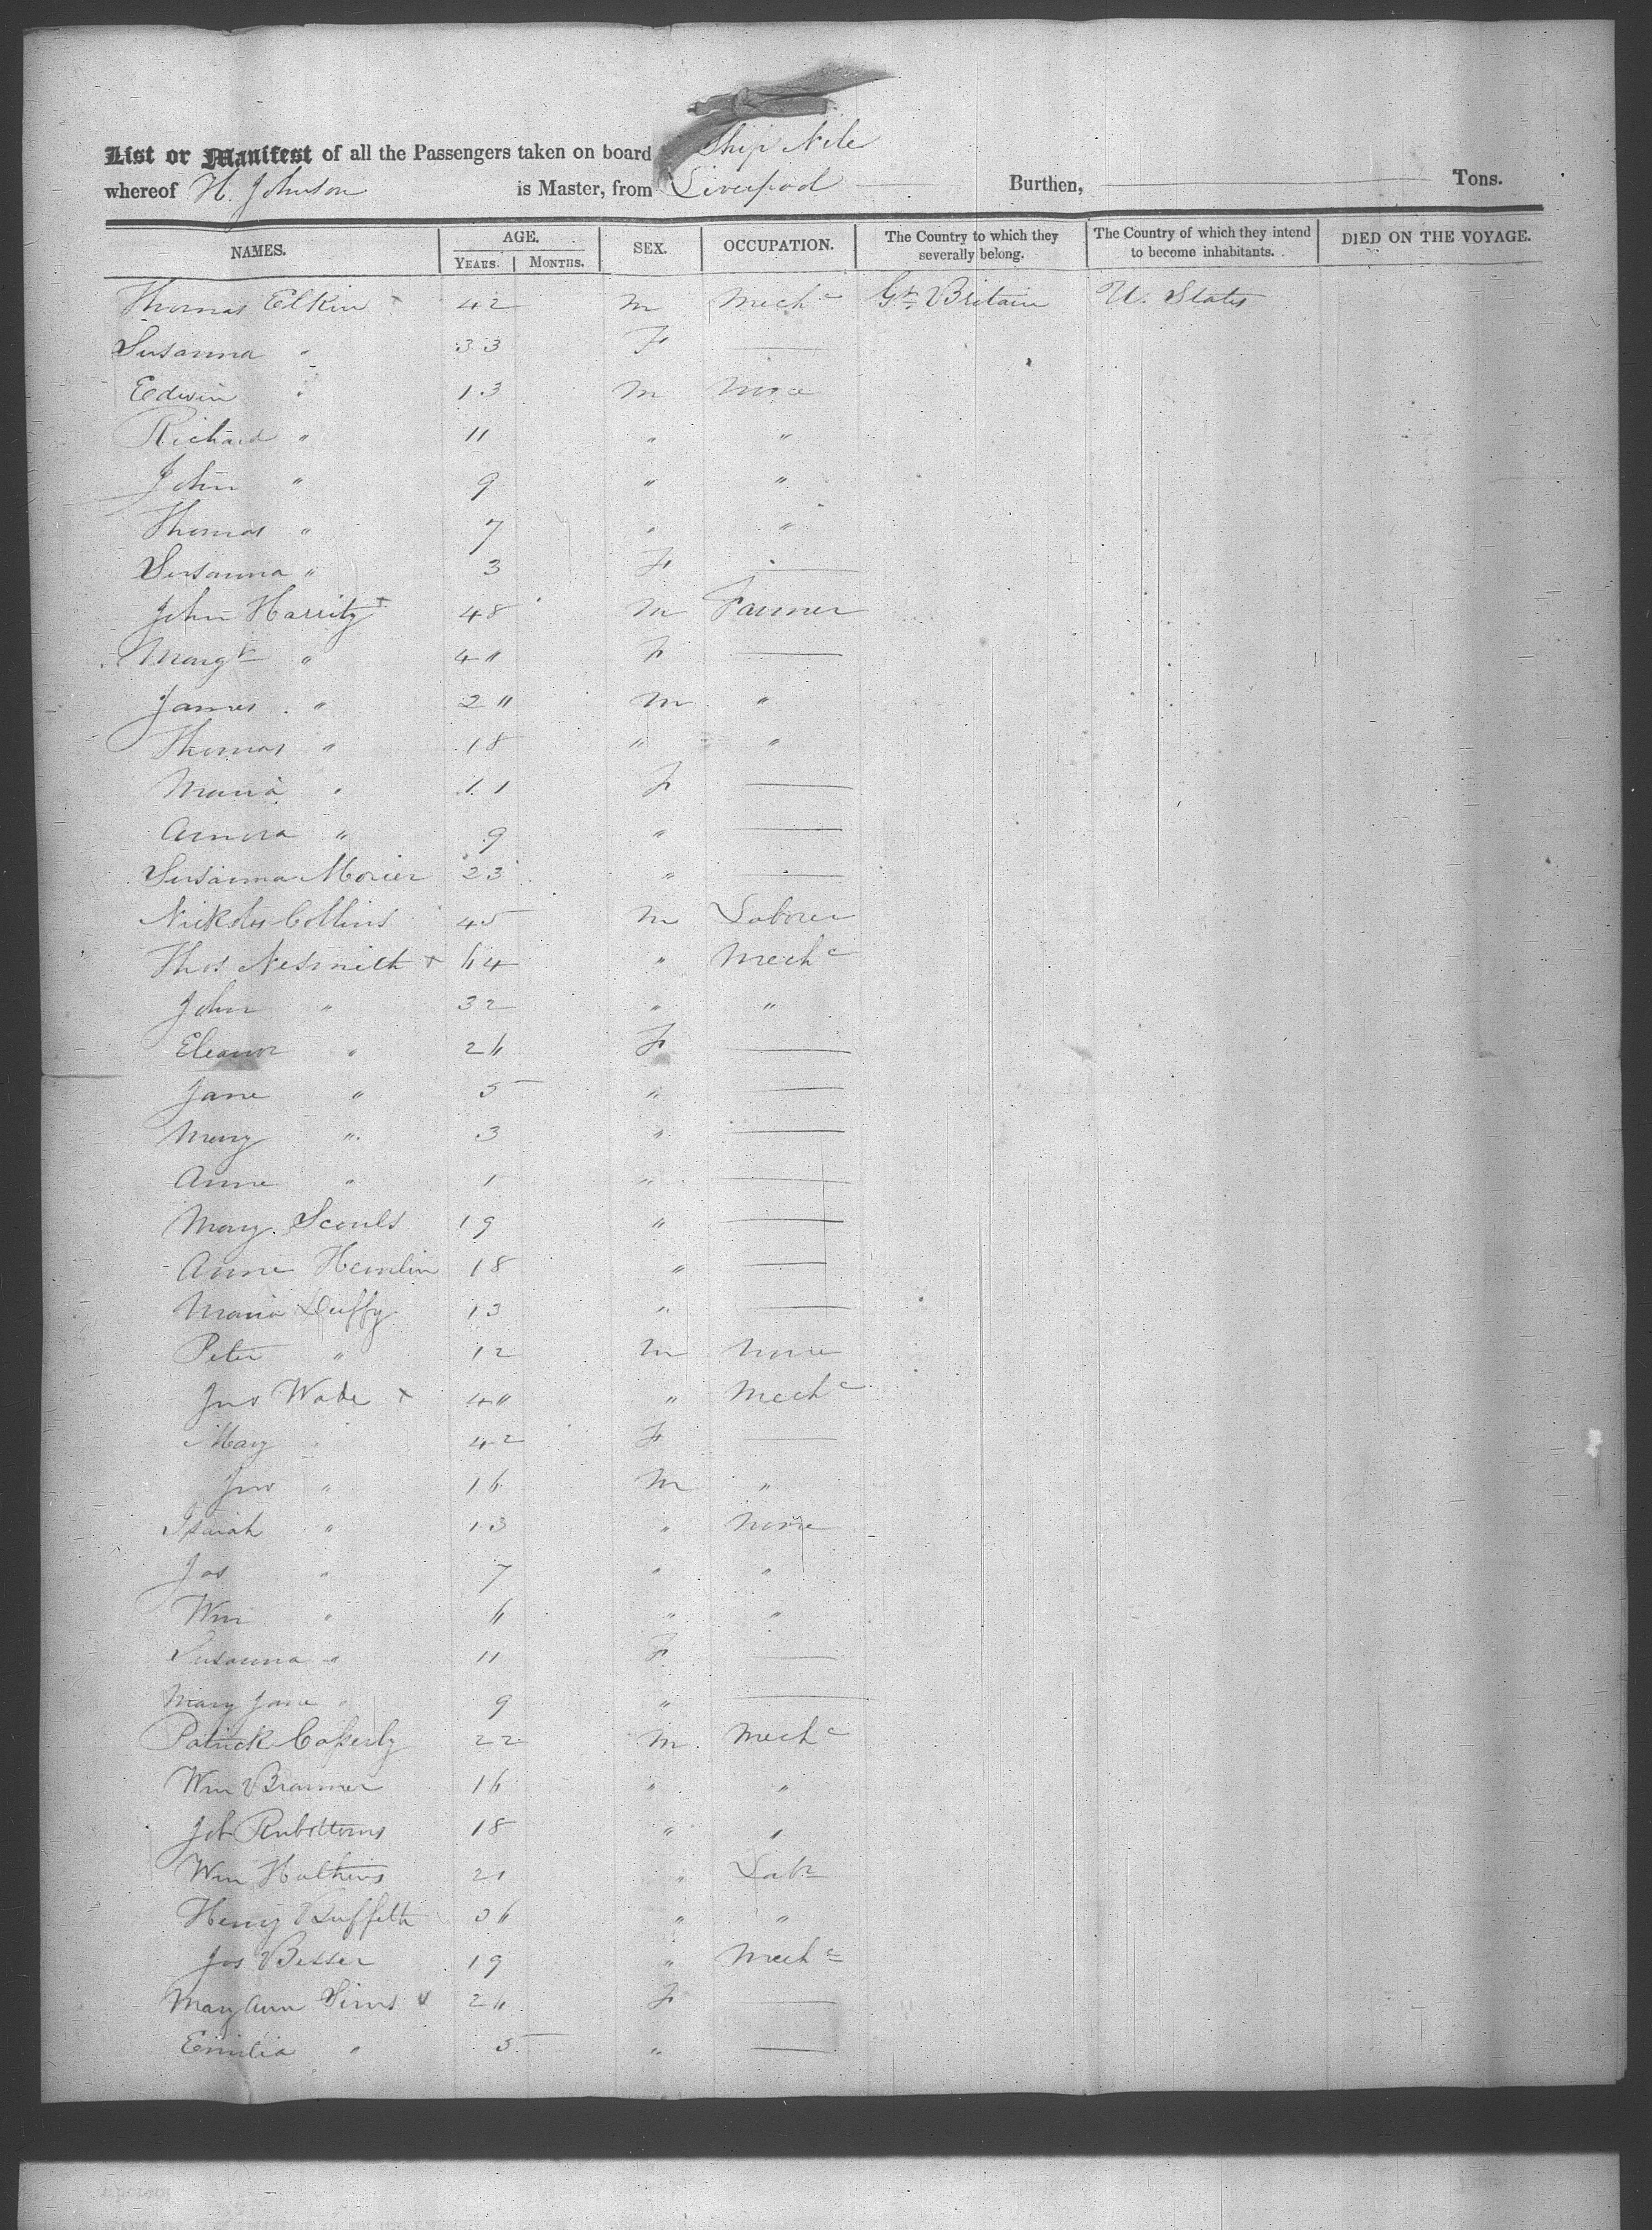 List or Manifest of all the Passengers taken on board Ship Nile
whereof H. Johnson is Master, from Liverpool Burthen, Tons.
NAMES. AGE. YEARS. MONTHS. SEX. OCCUPATION. The Country to which they severally belong. The Country of which they intend to become inhabitants. DIED ON THE VOYAGE.
Thomas Elkin + 42 m Mechc Gt Britain U. States
Susanna " 33 F —
Edwin " 13 m None
Richard " 11 " "
John " 9 " "
Thomas " 7 " "
Susanna " 3 F —
John Harrity + 48 m Farmer
Margt " 4" F —
James " 2" m "
Thomas " 18 " "
Maria " 11 F —
" 9 " —
Susanna 23 " —
Collins 45 m Laborer
Thos Nesmith + 64 " Mechc
John " 32 " "
Eleanor " 26 F —
Jane " 5 " —
Mary " 3 " —
Anne " 1 " —
Mary 19 " —
Anne Hemlin 18 " —
Maria Duffy 13 " —
Peter " 12 m None
Jno Wade + 4" " Mechc
Mary " 42 F —
Jno " 16 m "
Isaiah " 13 " None
Jas " 7 " "
Wm " 6 " "
Susanna " 11 F —
Mary Jane " 9 " —
Patrick 22 m Mechc
Wm 16 " "
18 " "
Wm 21 " Labr
Henry 36 " "
Jos Besser 19 " Mechc
Mary Ann Sims 26 F —
Emilia " 5 " —